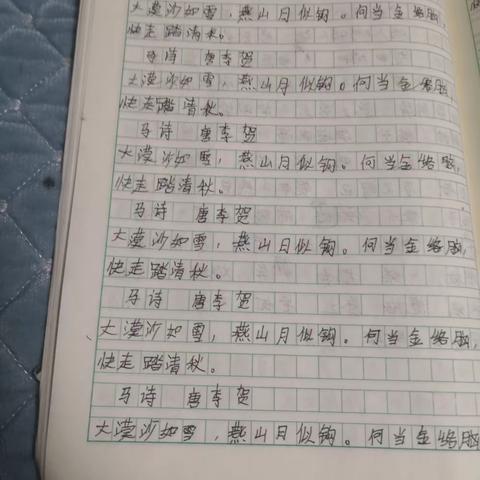 大漠沙如雪，燕山月似钩。何当金络脑，
快走踏清秋。
马诗 唐李贺
大漠沙如雪，燕山月似钩。何当金络脑，
快走踏清秋。
马诗 唐李贺
大漠沙如雪，燕山月似钩。何当金络脑，
快走踏清秋。
马诗 唐李贺
大漠沙如雪，燕山月似钩。何当金络脑，
快走踏清秋。
马诗 唐李贺
大漠沙如雪，燕山月似钩。何当金络脑，
快走踏清秋。
马诗 唐李贺
大漠沙如雪，燕山月似钩。何当金络脑